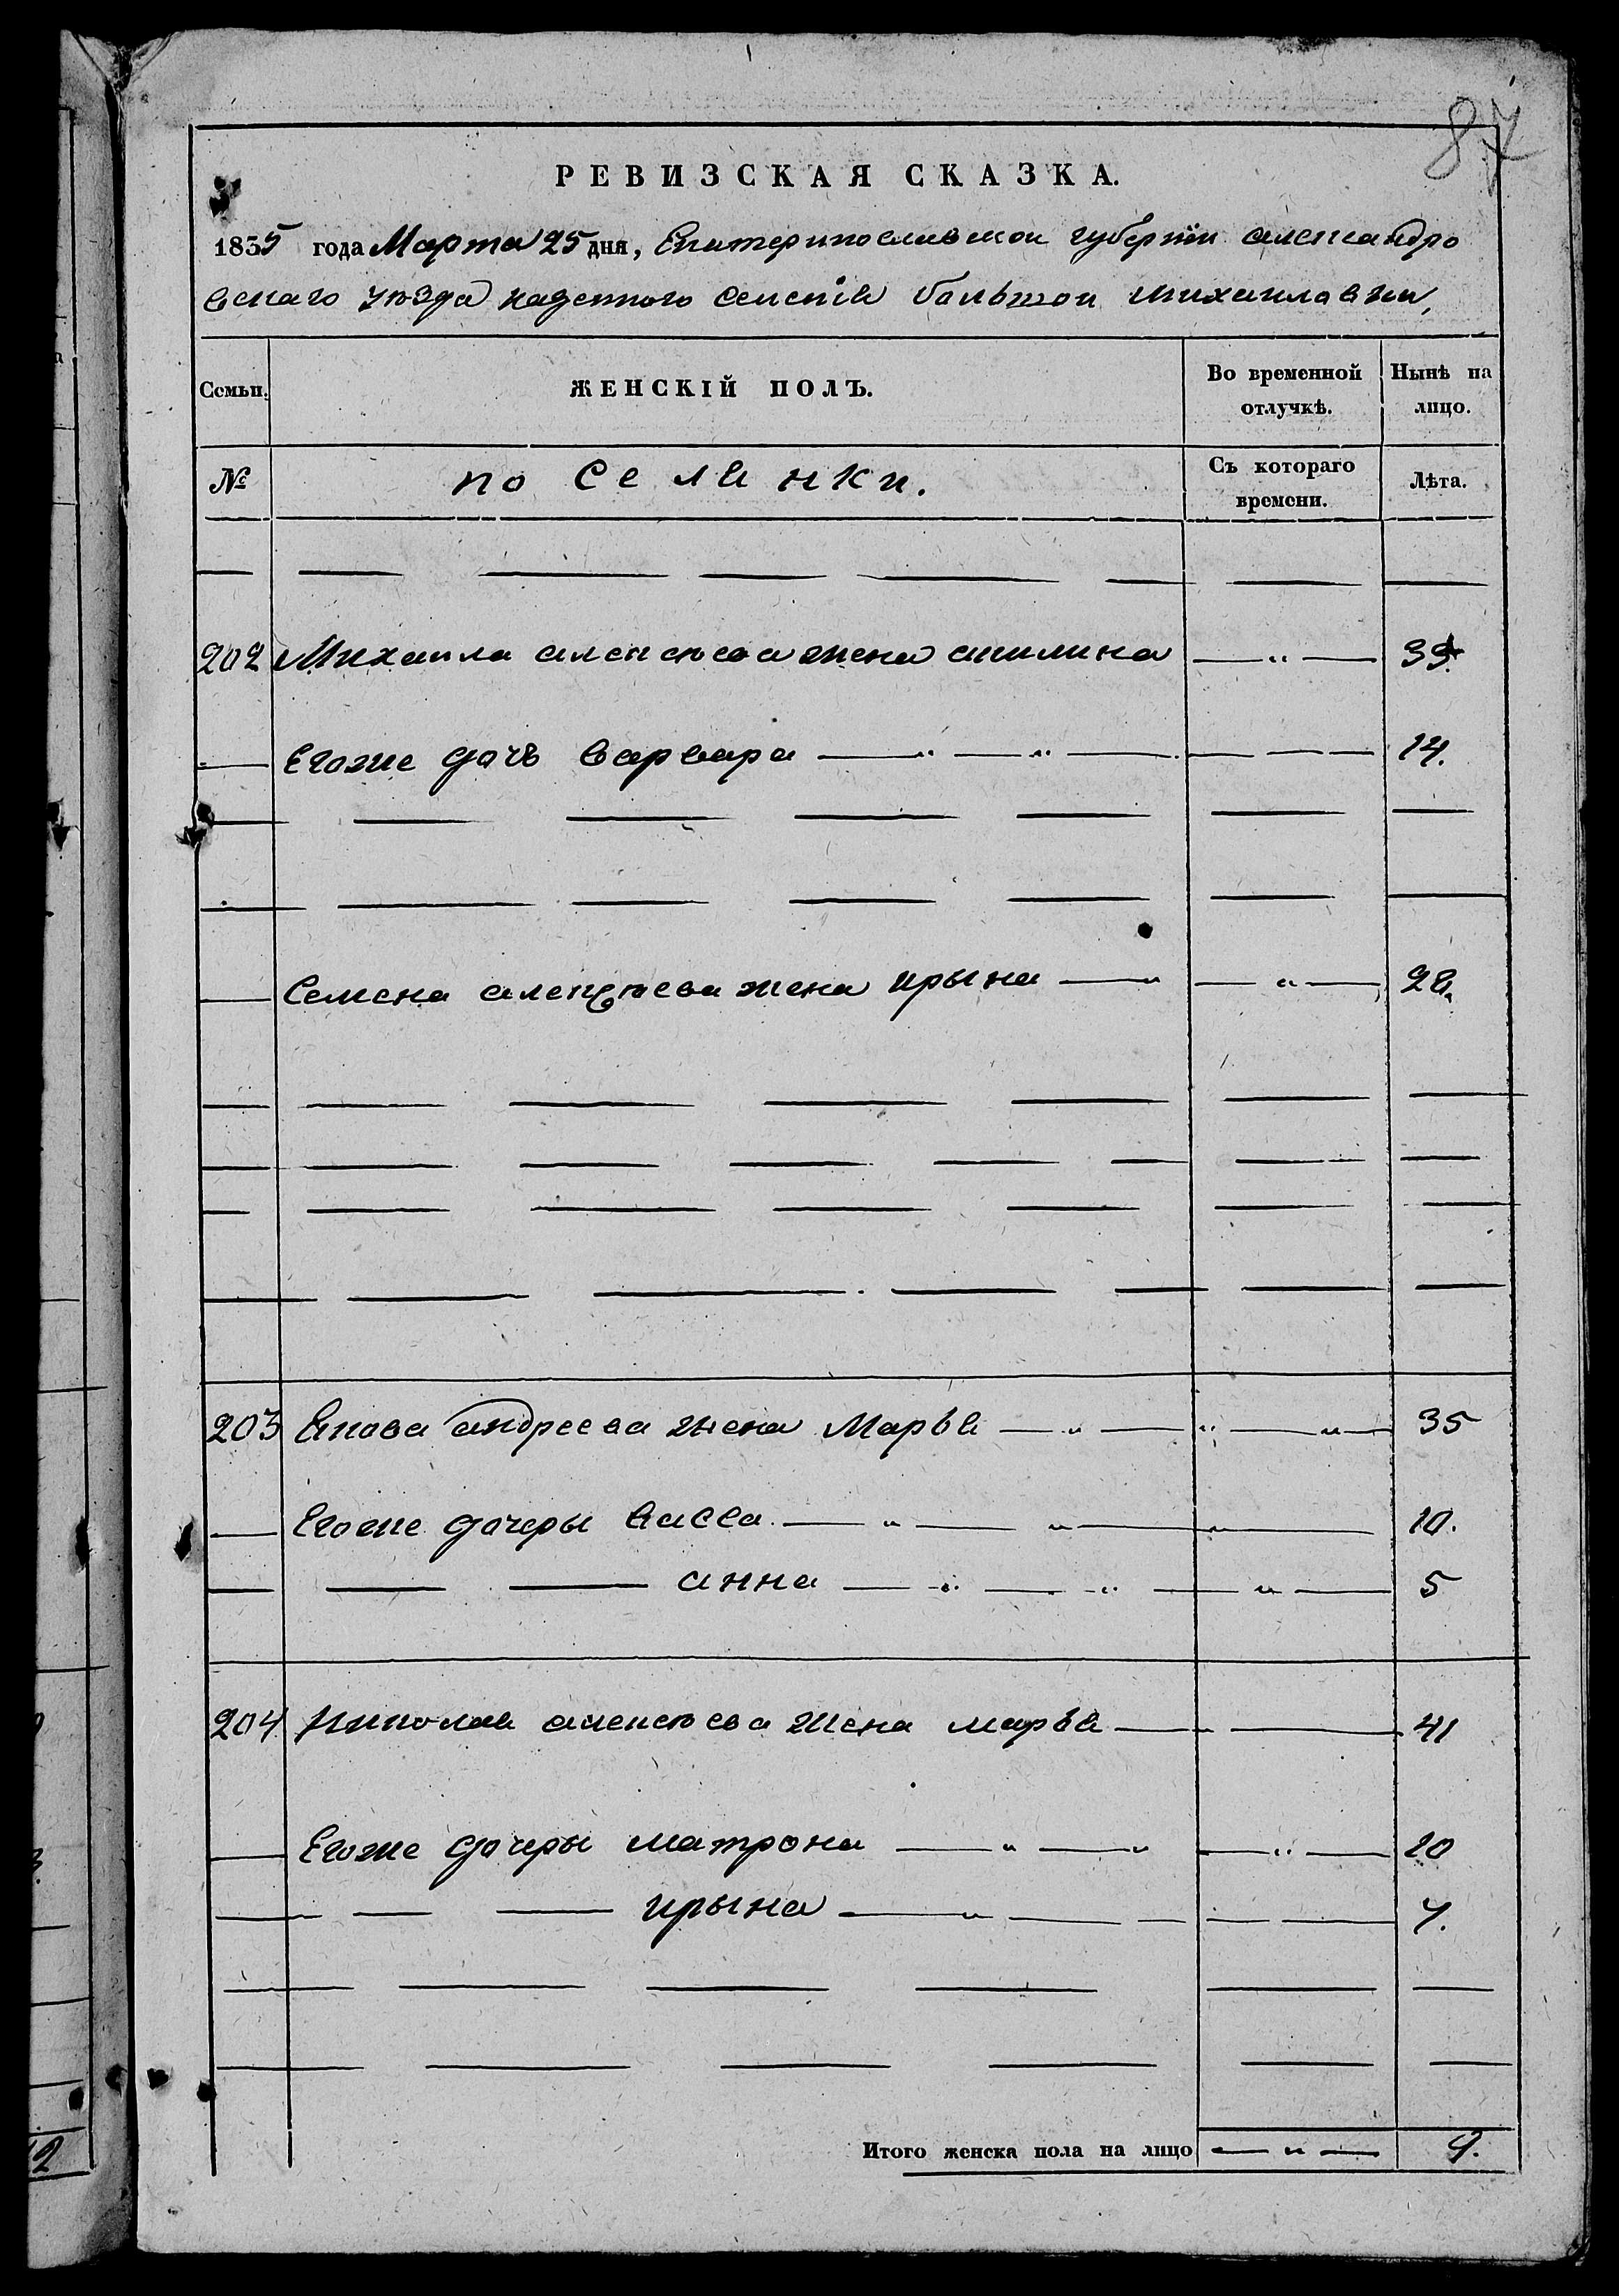 87
РЕВИЗСКАЯ СКАЗКА.
1835 года Марта 25 дня, Екатеринославской губернїи александро
вскаго уѣзда казенного селенїя большой михайловки,
Семьи. ЖЕНСКІЙ ПОЛЪ. Во временной отлучкѣ. Нынѣ на лицо.
№ поселянки. Съ котораго времени. Лѣта.
202 Михаила алексѣева жена акилина — " — 39.
Егоже дочь варвара — " — " — 14.
Семена алексѣева жена ирына — " — " — 28.
203 Якова андреева жена Марья — " — " — " — 35
Егоже дочеры васса — " — " — " — 10.
анна — " — " — " — 5
204 Николая алексѣева жена марья — 41
Егоже дочеры матрона — " — " — " — 20
ирына — " — 7.
Итого женска пола на лицо — " — 9.
12